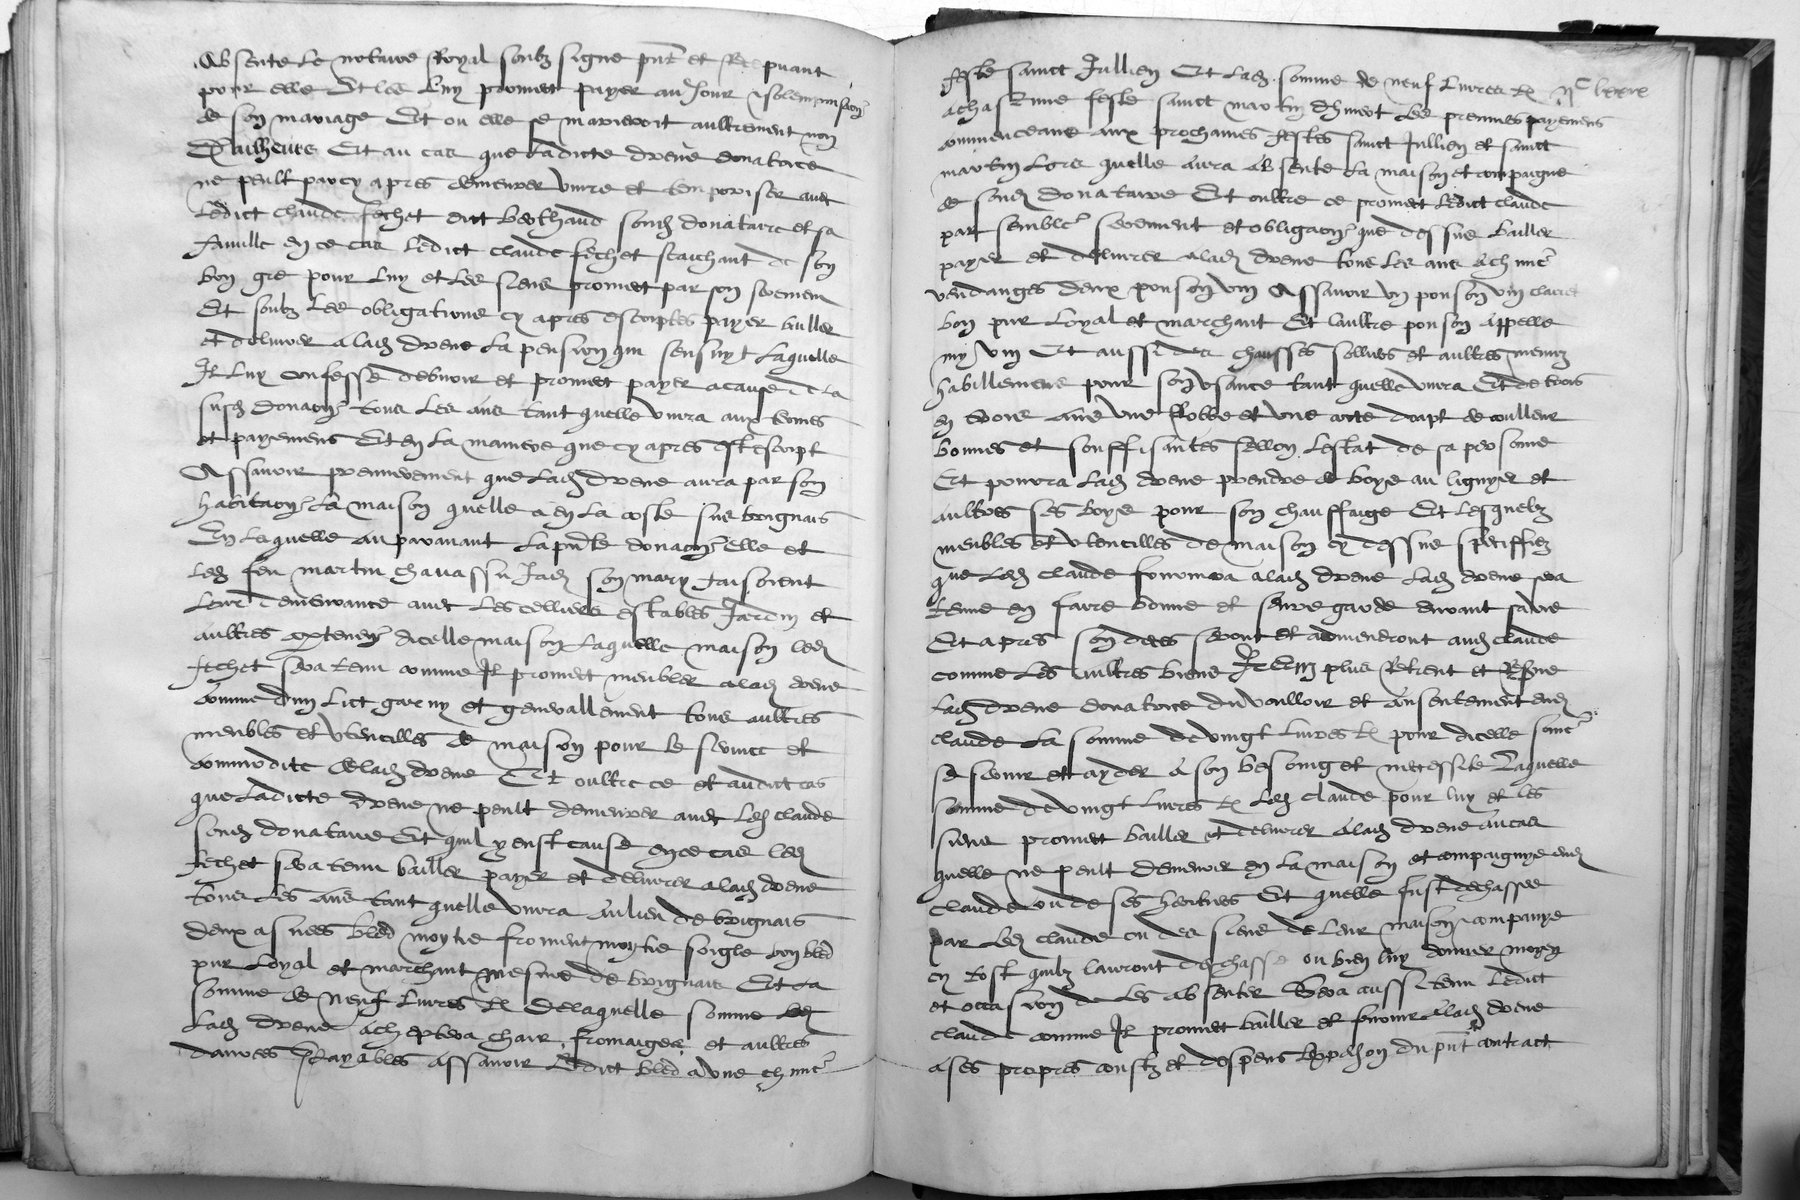 Absente le notaire Royal soubz signe pnt et stipuant
pour elle Et les luy promect payer au Jour & solempnisaon
de son mariage Et ou elle se marieroit aultrement non
Et au cas que ladicte drene donatrice
ne peult par cy apres demeurer vivre et temporiser avec
Ledict claude fechet dict berthaud sond donataire et sa
famille en ce cas ledict claude fechet scaichant de son
bon gre pour luy et les siens promect par son serement
Et soubz les obligations cy apres escriptes payer bailler
et delivrer a lad drene la pension qui sensuyt Laquelle
Il luy confesse debvoir et promect payer a cause de la
susd donaon tous les ans tant quelle vivra aux termes
et payemens Et en la maniere que cy apres est escript
Assavoir premierement que lad drene aura par son
habitaon la maison quelle a en la coste sus brignais
En laquelle auparavant la pnte donaon elle et
led feu martin chavassu Jad son mary faisoient
leur demeurance avec les celliers estables Jardin et
aultres dicelle maison Laquelle maison led
fechet sera tenu comme Il promect meubler a lad drene
comme dun lict garny et generallement tous aultres
meubles et utencilles de maison pour le service et
commodite de lad drene Et oultre ce et audict cas
que ladicte drene ne peult demeurer avec led claude
sond donataire Et quil y eust cause en ce cas led
fechet sera tenu bailler payer et delivrer a lad drene
tous les ans tant quelle vivra au lieu de brignais
deux asnees bled moytie froment moytie soigle bon bled
pur loyal et marchant mesure de brignais Et la
somme de neuf livres tz De laquelle somme
lad drene acheptera chair fromaiges et aultres
danrees payables assavoir ledict bled a une chune
feste sainct Jullien Et lad somme de neuf livres tz
a chascune feste sainct martin les premiers payemens
commenceans aux prochaines festes sainct Jullien et sainct
martin lors quelle aura absente la maison et compaignie
de sond donataire Et oultre ce promect ledict claude
par semble serement et obligaon que dessus bailler
payer et delivrer a lad drene tous les ans a chune
vendanges deux ponson vin Assavoir un ponson vin clairet
bon pur loyal et marchant Et laultre ponson appelle
my vin Et aussi des chausses solliers et aultres menuz
habillemens pour son usance tant quelle vivra Et de trois
en trois ans une Robbe et une cotte drapt de coulleur
bonnes et souffisantes sellon lestat de sa personne
Et pourra lad drene prendre de boys au lignyer et
aultres ses boys pour son chauffaige Et lesquelz
meubles et utencilles de maison cy dessus speciffiez
que led claude fornira a lad drene lad drene sera
tenue en faire bonne et seure garde durant sa vie
Et apres son deces seront et adviendront aud claude
comme les aultres biens Item plus Retient et Rserve
lad drene donatrice du voulloir et consentement dud
claude la somme de vingt livres tz pour dicelle
se servir et ayder a son besoing et necessite Laquelle
somme de vingt livres tz led claude pour luy et les
siens promect bailler et delivrer a lad drene au cas
quelle ne peult demeurer en la maison et compaignye dud
claude ou de ses heritiers Et quelle fust dechassee
par led claude ou des siens de leur maison & companye
cy tost quilz lauront deschassee ou bien luy donner moyen
et occasion de les absenter Sera aussi tenu ledict
claude comme Il promect bailler et fornir a lad drene
a ses propres coustz et despens lexpedon du pnt contract